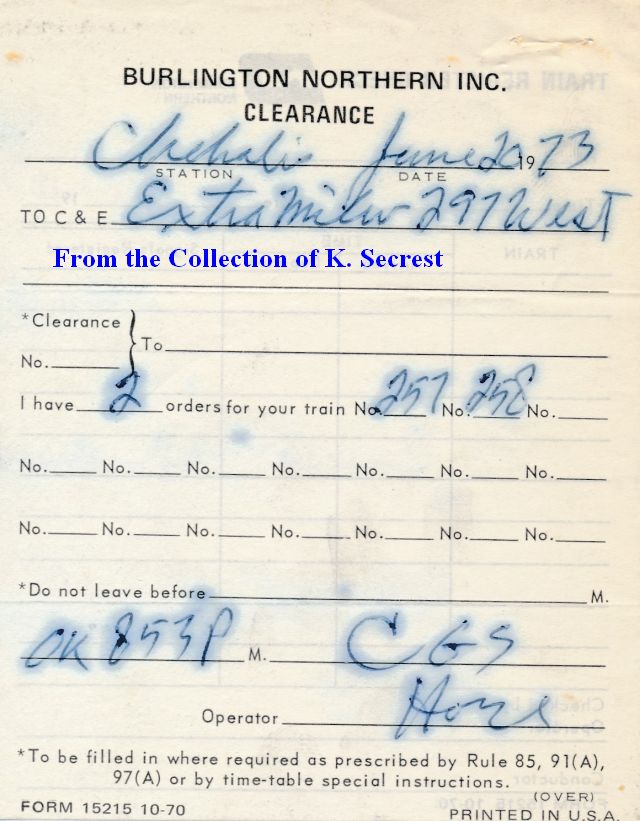 BURLINGTON NORTHERN INC.
CLEARANCE
Chehalis June 20 1973
STATION DATE
TO C & E Extra Milw 297 West
From the Collection of K. Secrest
*Clearance
No. To
I have 2 orders for your train No. 257 No. 258 No.
No. No. No. No. No. No. No.
No. No. No. No. No. No. No.
*Do not leave before M.
OK 853P M. CGS
Operator
*To be filled in where required as prescribed by Rule 85, 91(A),
97(A) or by time-table special instructions.
(OVER)
FORM 15215 10-70 PRINTED IN U.S.A.